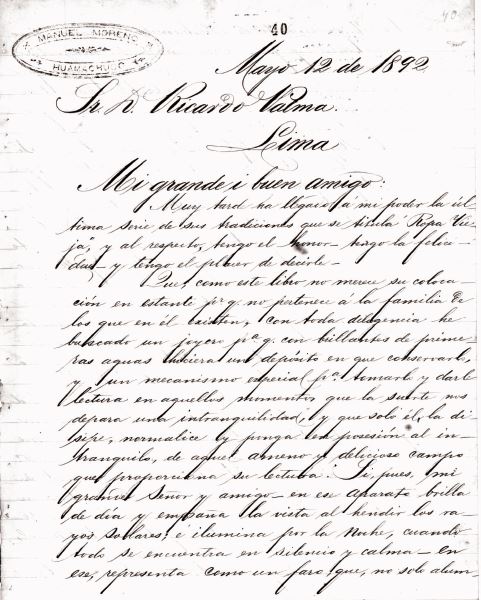 40
40
MANUEL MORENO
HUAMACHUCO
Mayo 12 de 1892
Sr. D. Ricardo Palma.
Lima
Mi grande i buen amigo:
Muy tard ha llegado á mi poder la úl-
tima serie de sus tradiciones que se titula Ropa Vie-
ja, y al respecto, tengo el honor - tengo la felici-
dad - y tengo el placer de decirle -
Que como este libro no merece su coloca-
ción en estante pr q. no pertenece á la familia de
los que en él existen, con toda diligencia he
buscado un joyero pa q. con brillantes de prime-
ras aguas hiciera un depósito en que conservarlo,
y un mecanismo especial pa. tomarlo y darle
lectura en aquellos momentos que la suerte nos
depara una intranquilidad, y que solo él, la di-
sipe, normalice y ponga en posesión al in-
tranquilo, de aquel ameno y delicioso campo
que proporciona su lectura. Si, pues, mi
grande Señor y amigo - en ese aparato brilla
de día y empaña la vista al hendir los ra-
yos sollares; e ilumina por la noche, cuando
todo se encuentra en silencio y calma - en
ese, representa como un faro, que, no solo alum-